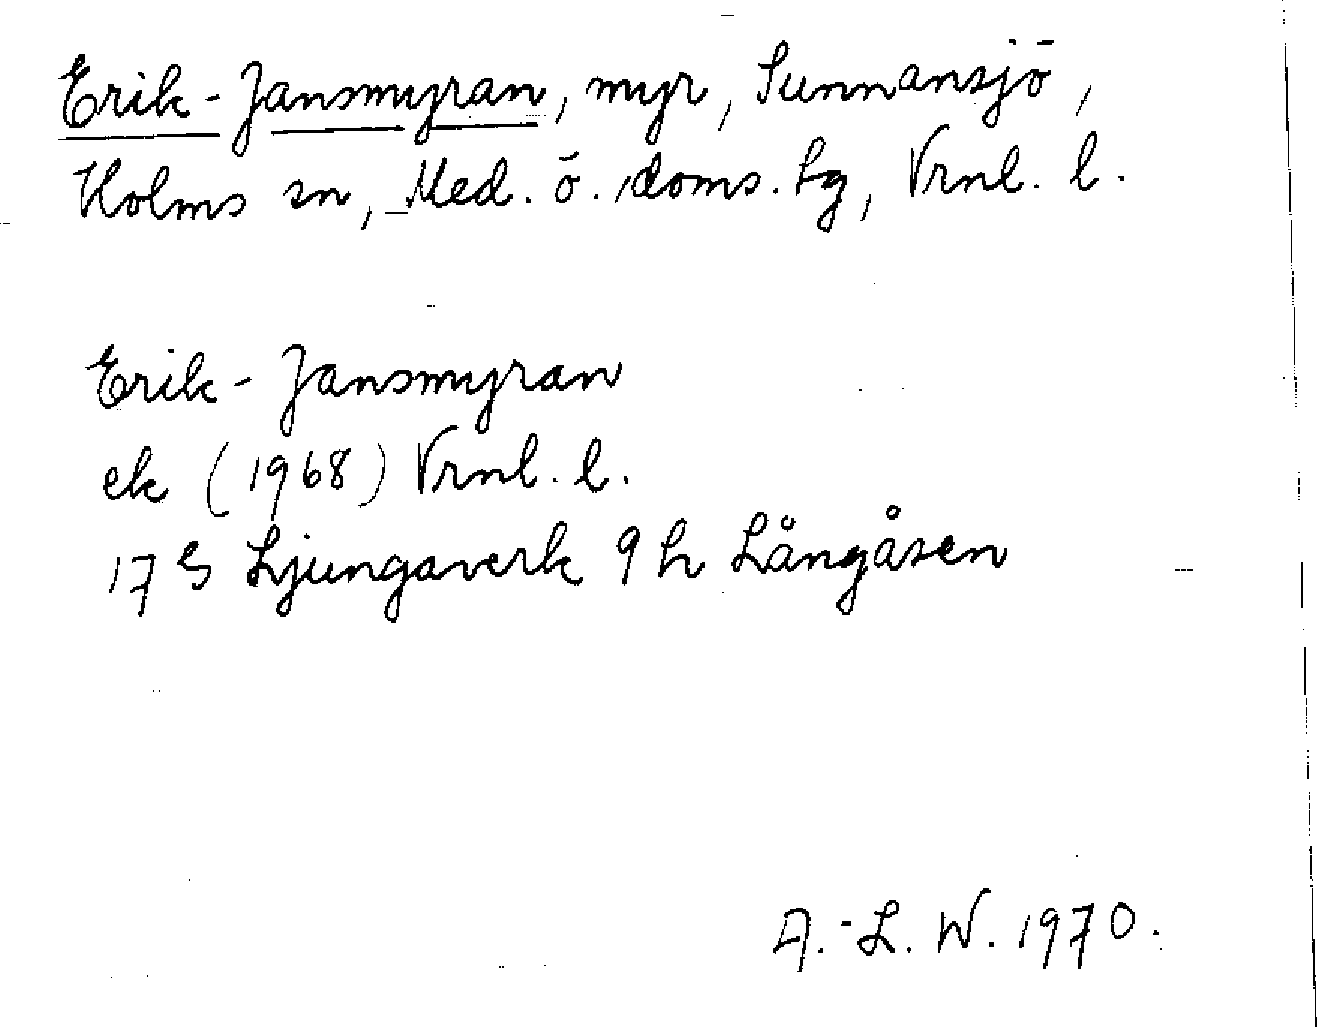 Erik-Jansmyran, myr, Sunnansjö,
Holms sn, Med. ö. doms. tg, Vrnl. l.
Erik-Jansmyran
ek (1968) Vrnl. l.
17 G Ljungaverk 9 h Långåsen
A.-L. W. 1970.